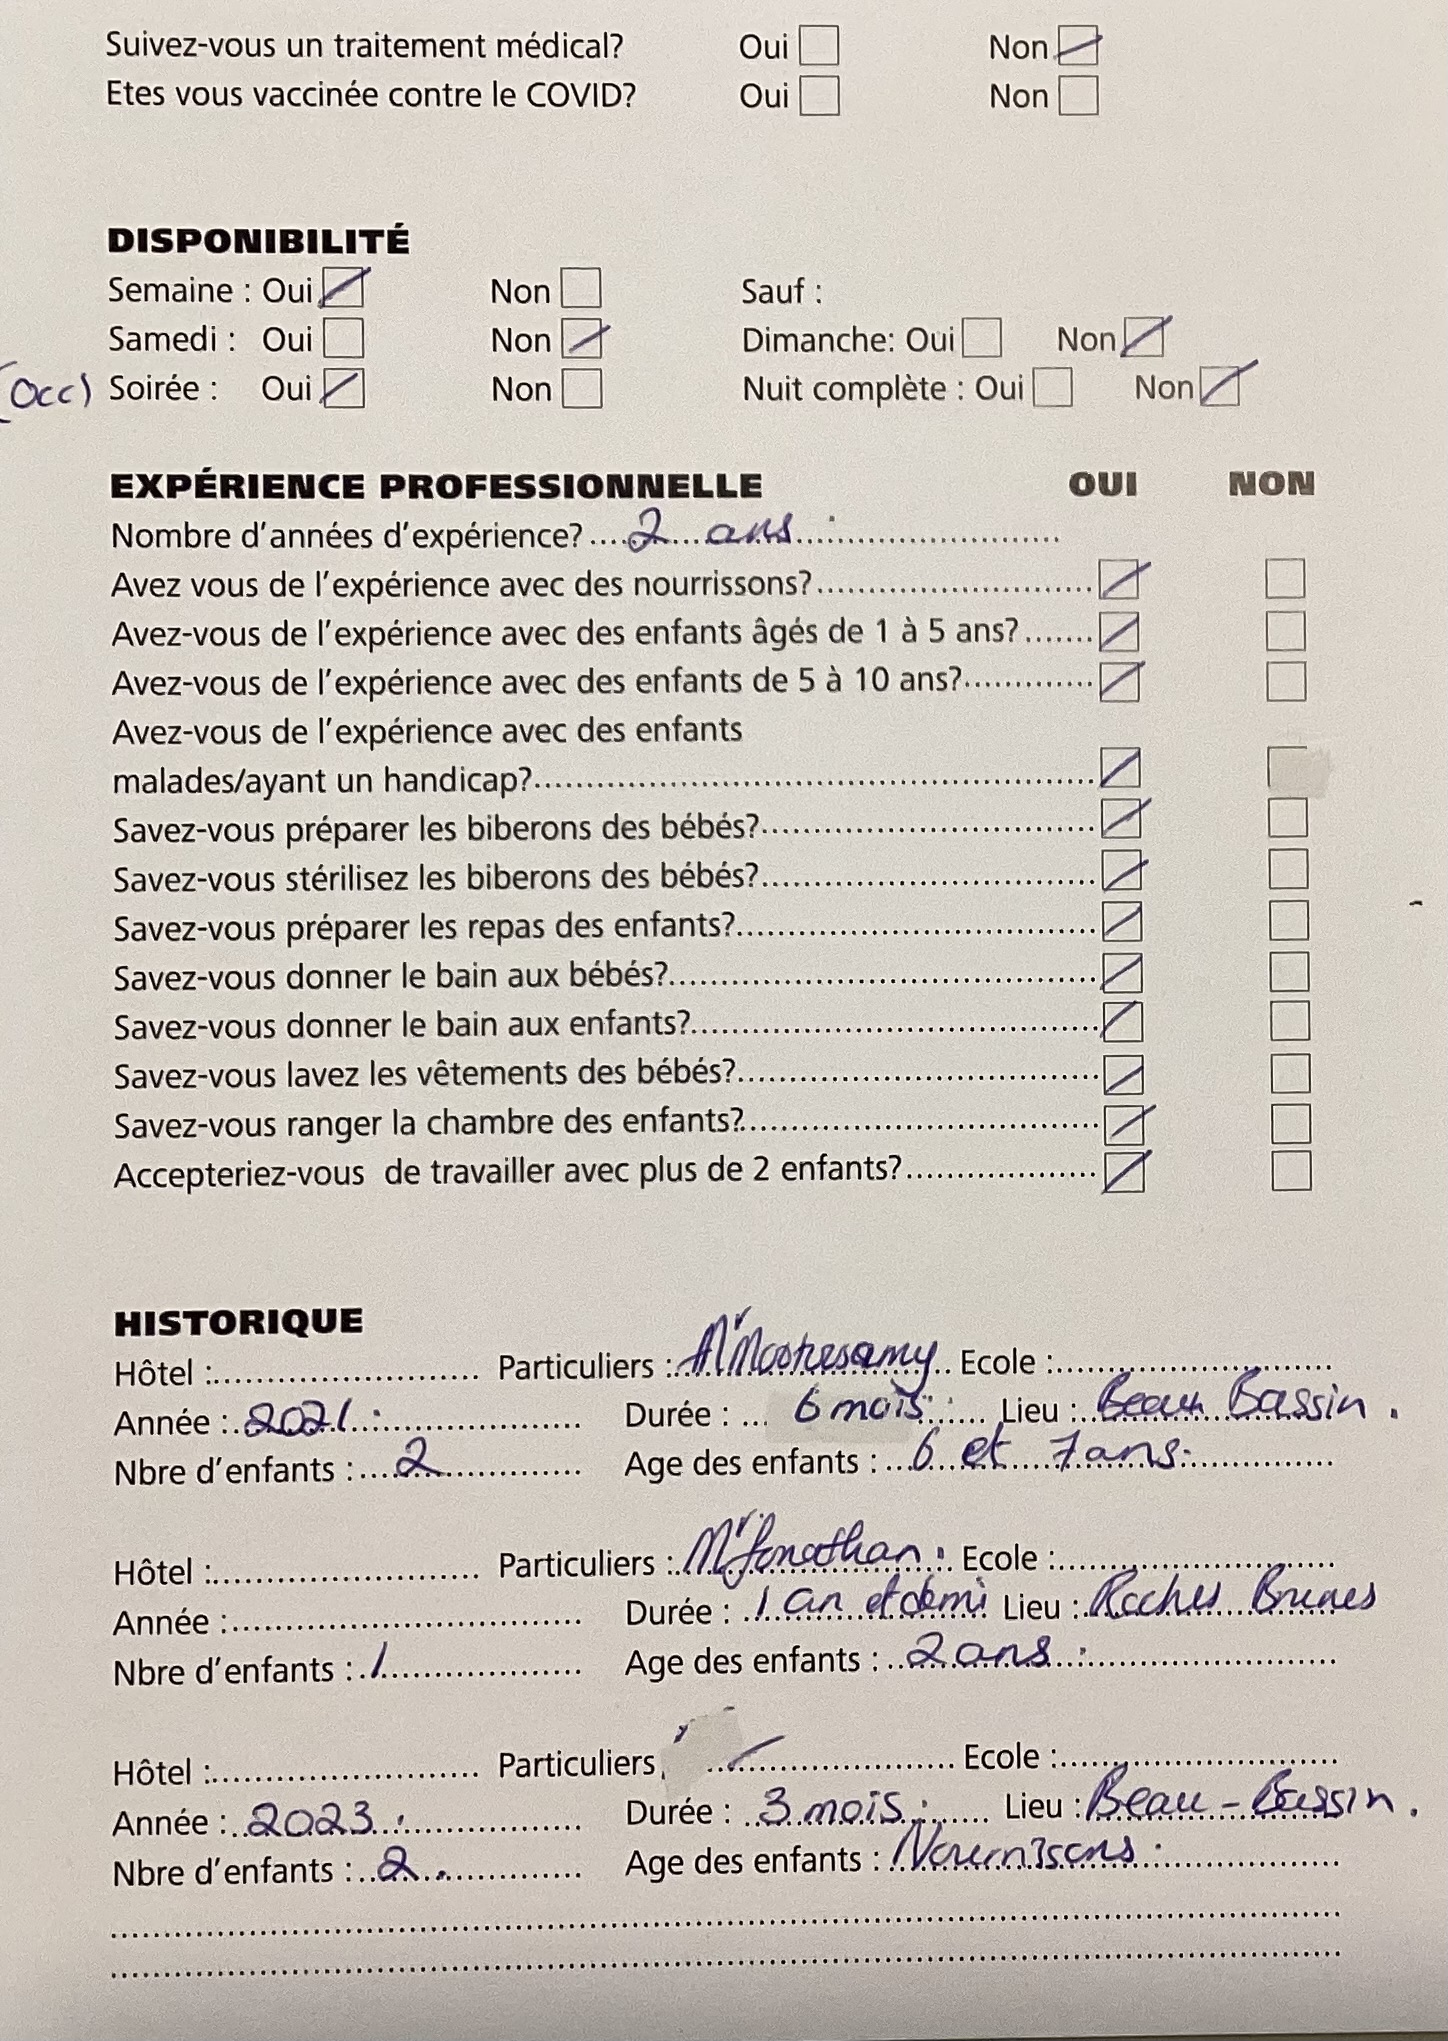 Suivez-vous un traitement médical? Oui Non
Etes vous vaccinée contre le COVID? Oui Non
DISPONIBILITÉ
Semaine : Oui Non Sauf :
Samedi : Oui Non Dimanche: Oui Non
(Occ) Soirée : Oui Non Nuit complète : Oui Non
EXPÉRIENCE PROFESSIONNELLE OUI NON
Nombre d'années d'expérience? 2 ans
Avez vous de l'expérience avec des nourrissons?
Avez-vous de l'expérience avec des enfants âgés de 1 à 5 ans?
Avez-vous de l'expérience avec des enfants de 5 à 10 ans?
Avez-vous de l'expérience avec des enfants
malades/ayant un handicap?
Savez-vous préparer les biberons des bébés?
Savez-vous stérilisez les biberons des bébés?
Savez-vous préparer les repas des enfants?
Savez-vous donner le bain aux bébés?
Savez-vous donner le bain aux enfants?
Savez-vous lavez les vêtements des bébés?
Savez-vous ranger la chambre des enfants?
Accepteriez-vous de travailler avec plus de 2 enfants?
HISTORIQUE
Hôtel : Particuliers : Mr Ecole :
Année : 2021 Durée : 6 mois Lieu : Beau Bassin.
Nbre d'enfants : 2 Age des enfants : 6 et 7 ans
Hôtel : Particuliers : Mr Jonathan Ecole :
Année : Durée : 1 an et demi Lieu : Roches Brunes
Nbre d'enfants : 1 Age des enfants : 2 ans
Hôtel : Particuliers Ecole :
Année : 2023 Durée : 3 mois Lieu : Beau-Bassin.
Nbre d'enfants : 2 Age des enfants : Nourrissons